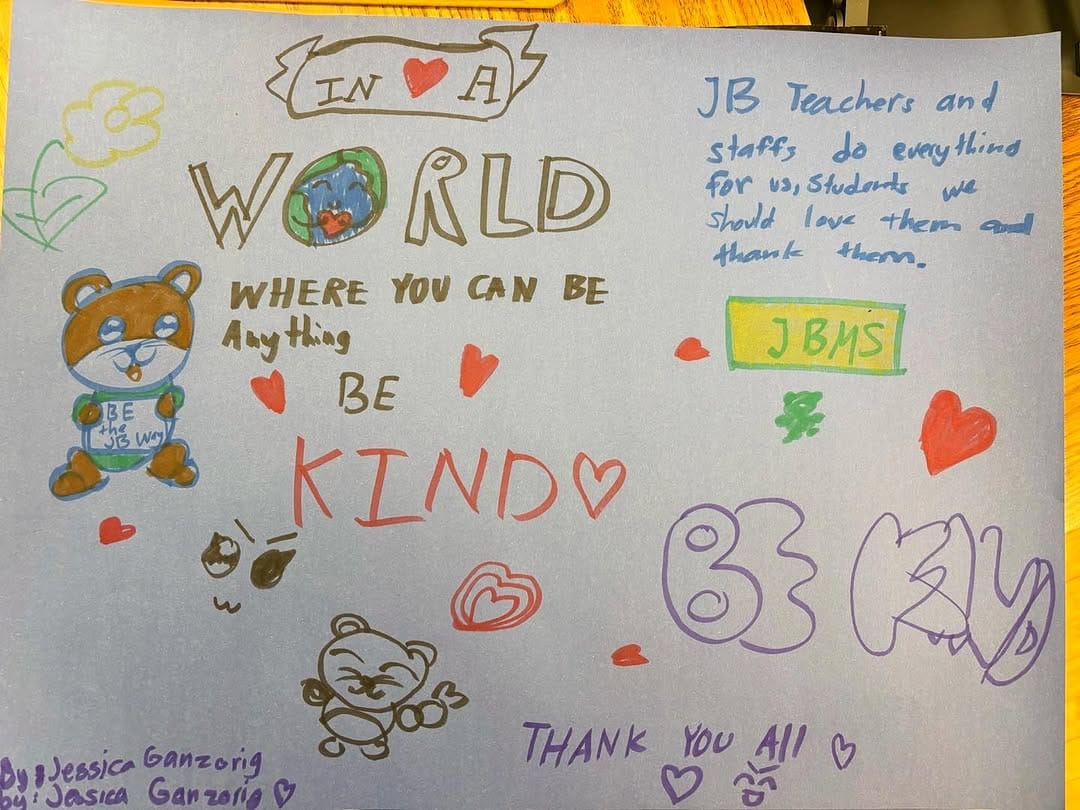 IN A
WORLD
WHERE YOU CAN BE
Anything
BE
KIND
BE
the
JB Way
JB Teachers and
staffs do everything
for us, Students we
should love them and
thank them.
JBMS
BE
THANK YOU All
By: Jessica Ganzorig
by: Jessica Ganzorig